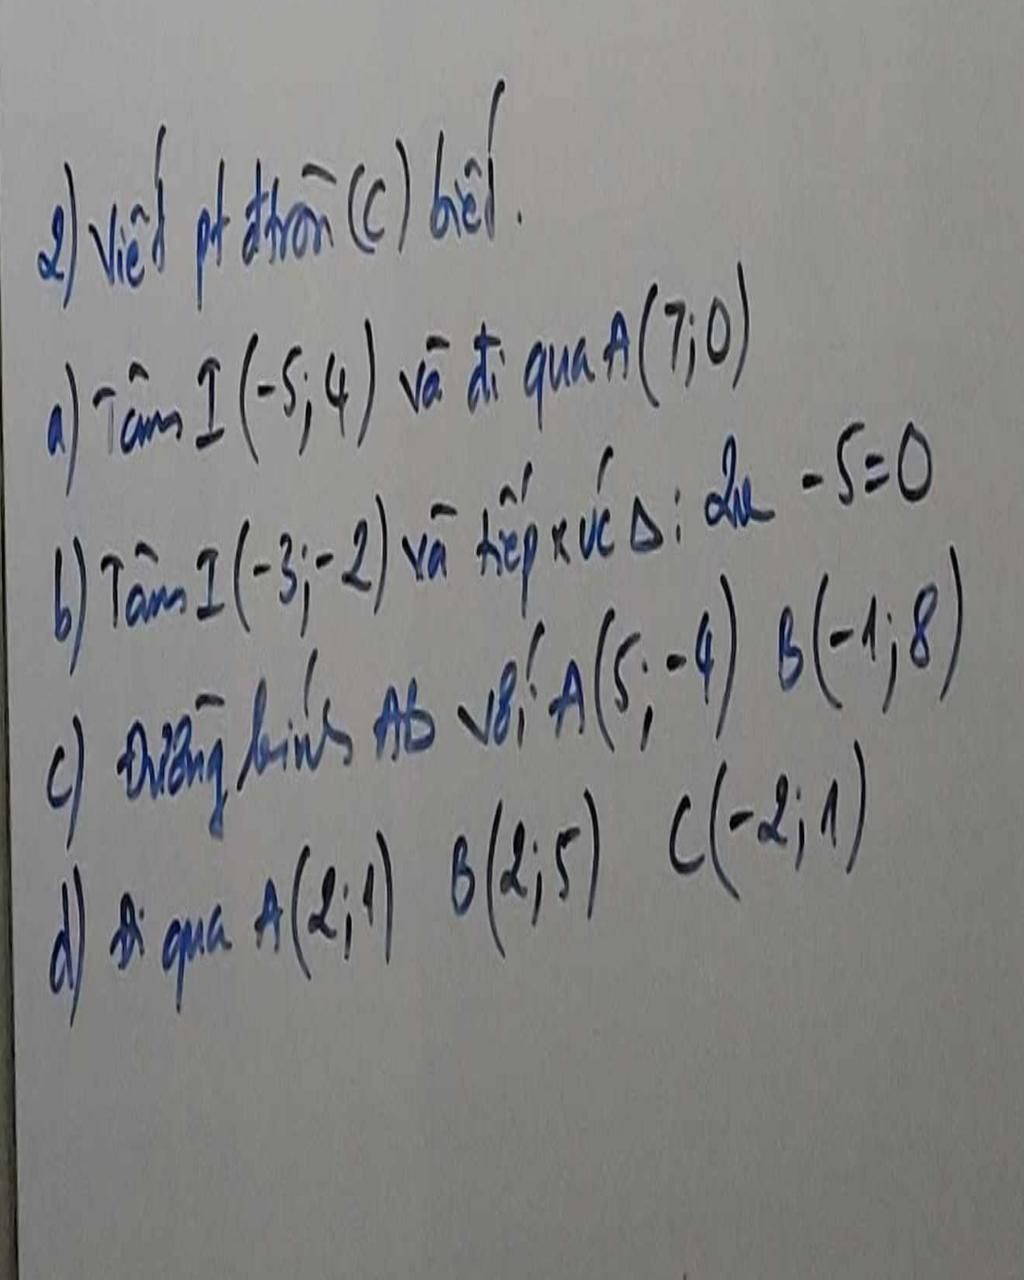 2) Viết pt đtròn (C) biết.
a) Tâm I (-5; 4) và đi qua A (7; 0)
b) Tâm I (-3; -2) và tiếp xúc Δ: 2x - 5 = 0
c) Đường kính AB với A (5; -4) B (-1; 8)
d) Đi qua A (2; 1) B (2; 5) C (-2; 1)